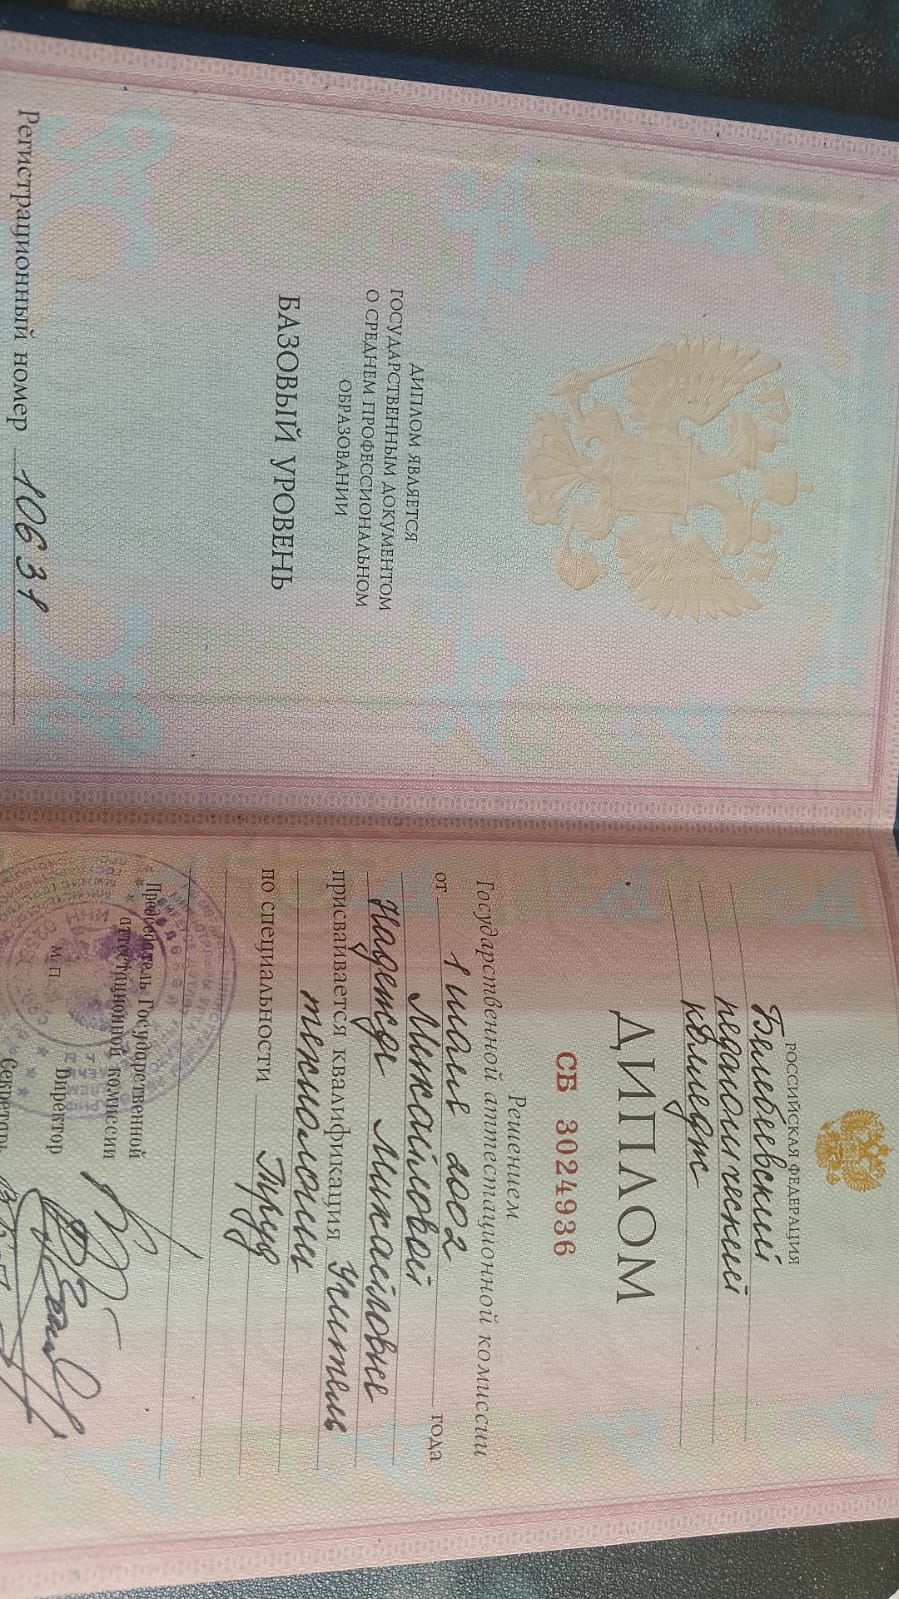 ДИПЛОМ ЯВЛЯЕТСЯ
ГОСУДАРСТВЕННЫМ ДОКУМЕНТОМ
О СРЕДНЕМ ПРОФЕССИОНАЛЬНОМ
ОБРАЗОВАНИИ
БАЗОВЫЙ УРОВЕНЬ
Регистрационный номер 10631
РОССИЙСКАЯ ФЕДЕРАЦИЯ
Белебеевский
педагогический
колледж
ДИПЛОМ
СБ 3024936
Решением
Государственной аттестационной комиссии
от 1 июля 2002 года
Михайловой
Надежде Михайловне
присваивается квалификация Учитель
технологии
по специальности Труд
Председатель Государственной
аттестационной комиссии
Директор
М.П.
Секретарь